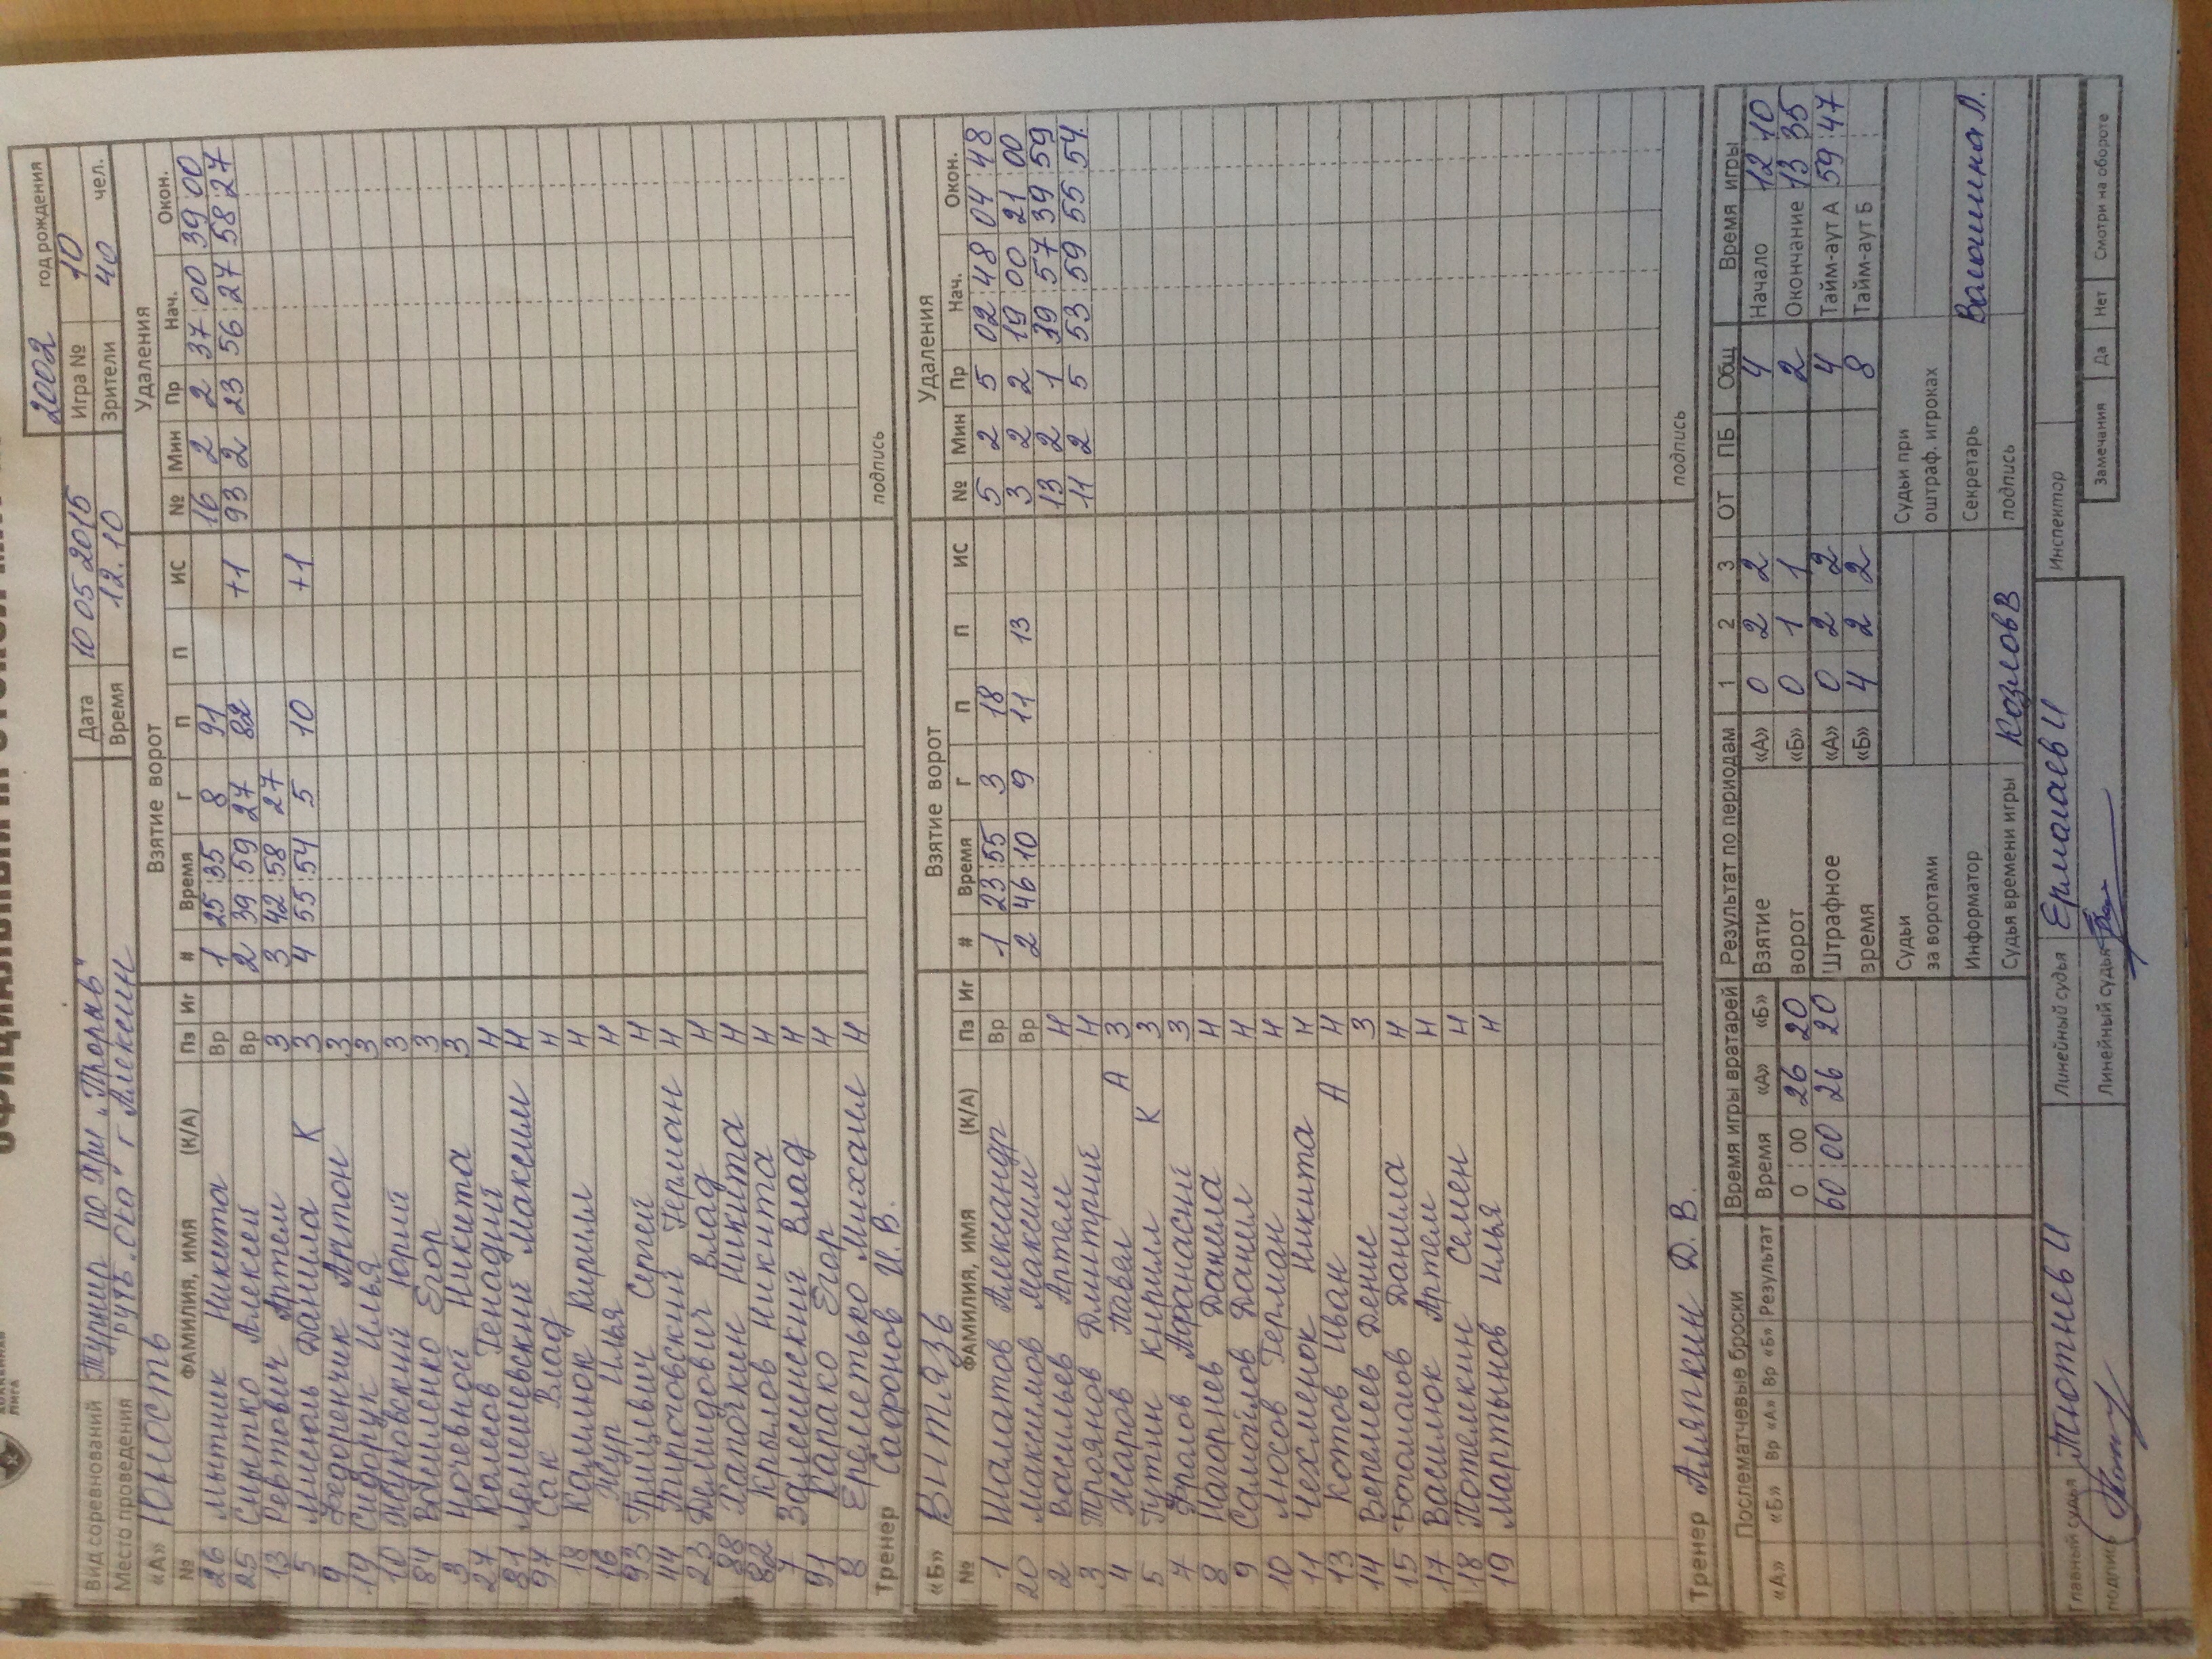 2002 год рождения
Вид соревнований Турнир по хри „Прорыв" Дата 10 05 2015 Игра № 10
Место проведения руть „Ока" г Алексин Время 12.10 Зрители 40 чел.
«А» Юность Взятие ворот Удаления
№ ФАМИЛИЯ, ИМЯ (К/А) Пз Иг # Время Г П П ИС № Мин Пр Нач. Окон.
26 Мытник Никита Вр 1 25:35 8 91 16 2 2 37:00 39:00
25 Снытко Алексей Вр 2 39:59 27 82 +1 93 2 23 56:27 58:27
13 Ревтович Артем З 3 42:58 27
5 Мисюль Данила К З 4 55:54 5 10 +1
9 Федоренчик Антон З
19 Сидорук Илья З
10 Жуковский Юрий З
84 Войленко Егор З
3 Ночевной Никита З
27 Колесов Генадий Н
81 Лемешевский Максим Н
97 Сак Влад Н
18 Камлюк Кирилл Н
16 Жур Илья Н
93 Грицевич Сергей Н
44 Пироговский Герман Н
23 Демидович Влад Н
88 Хапочкин Никита Н
82 Крылов Никита Н
7 Залесинский Влад Н
91 Карако Егор Н
8 Ереметько Михаил Н
Тренер Сафронов И.В. подпись
«Б» Витязь Взятие ворот Удаления
№ ФАМИЛИЯ, ИМЯ (К/А) Пз Иг # Время Г П П ИС № Мин Пр Нач. Окон.
1 Шалатов Александр Вр 1 23:55 3 18 5 2 5 02:48 04:48
20 Максимов Максим Вр 2 46:10 9 11 13 3 2 2 19:00 21:00
2 Васильев Артем Н 13 2 1 39:57 39:59
3 Троянов Дмитрий Н 11 2 5 53:59 55:54
4 Жаров Павел А З
5 Гутин Кирилл К З
7 Фролов Афанасий З
8 Нагорнев Данила Н
9 Самойлов Данил Н
10 Люсов Герман Н
11 Чехменок Никита Н
13 Котов Иван А Н
14 Веремеев Денис З
15 Богомолов Данила Н
17 Василюк Артем Н
18 Потемкин Семен Н
19 Мартынов Илья Н
Тренер Аляпкин Д.В. подпись
Послематчевые броски Время игры вратарей Результат по периодам 1 2 3 ОТ ПБ Общ Время игры
«А» «Б» Вр «А» Вр «Б» Результат Время «А» «Б» Взятие «А» 0 2 2 4 Начало 12 10
0:00 26 20 ворот «Б» 0 1 1 2 Окончание 13 35
60:00 26 20 Штрафное «А» 0 2 2 4 Тайм-аут А 59:47
время «Б» 4 2 2 8 Тайм-аут Б
Судьи за воротами Судьи при оштраф. игроках
Информатор Секретарь Валошина Л.
Судья времени игры Козлов В подпись
Главный судья Тютнев И Линейный судья Ермолаев И Инспектор
подпись Линейный судья Замечания Да Нет Смотри на обороте